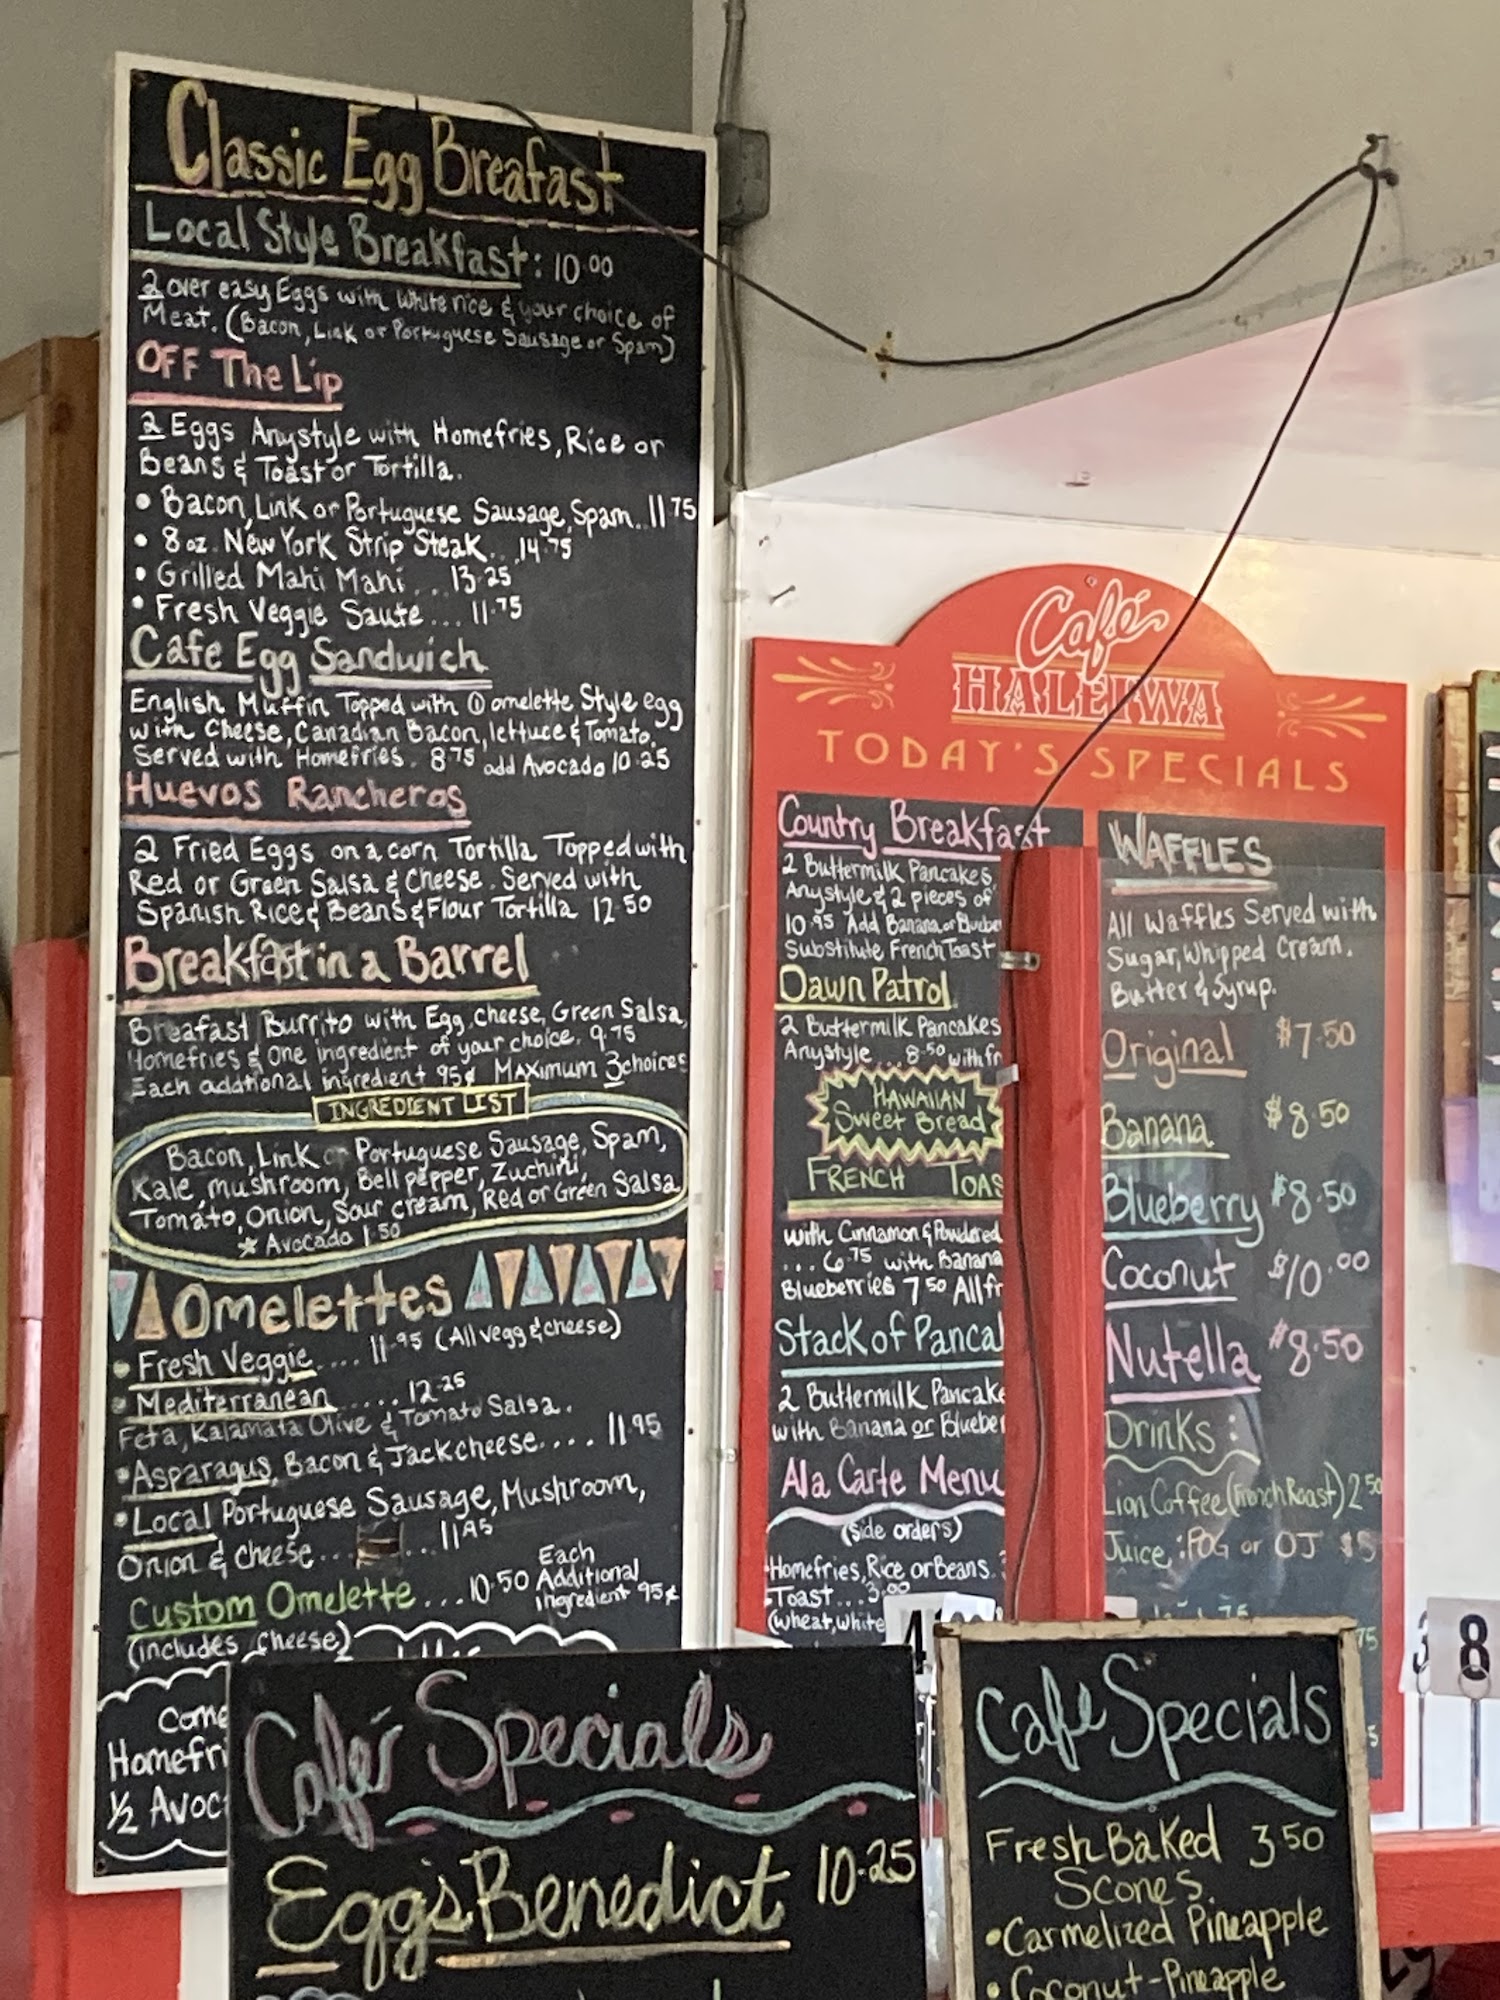 Classic Egg Breafast
Local Style Breakfast: 10.00
2 over easy Eggs with white rice & your choice of
Meat. (Bacon, Link or Portuguese Sausage or Spam)
OFF The Lip
2 Eggs Anystyle with Homefries, Rice or
Beans & Toast or Tortilla.
• Bacon, Link or Portuguese Sausage, Spam.. 11.75
• 8 oz. New York Strip Steak... 14.75
• Grilled Mahi Mahi... 13.25
• Fresh Veggie Saute... 11.75
Cafe Egg Sandwich
English Muffin Topped with ① omelette Style egg
with Cheese, Canadian Bacon, lettuce & Tomato.
Served with Homefries. 8.75 add Avocado 10.25
Huevos Rancheros
2 Fried Eggs on a corn Tortilla Topped with
Red or Green Salsa & Cheese. Served with
Spanish Rice & Beans & Flour Tortilla 12.50
Breakfast in a Barrel
Breafast Burrito with Egg, cheese, Green Salsa,
Homefries & One ingredient of your choice. 9.75
Each additional ingredient 95¢ Maximum 3 choices
INGREDIENT LIST
Bacon, Link or Portuguese Sausage, Spam,
Kale, mushroom, Bell pepper, Zuchini,
Tomato, Onion, Sour cream, Red or Green Salsa
* Avocado 1.50
Omelettes
• Fresh Veggie.... 11.95 (All vegg & cheese)
• Mediterranean..... 12.25
Feta, Kalamata Olive & Tomato Salsa.
• Asparagus, Bacon & Jack cheese.... 11.95
• Local Portuguese Sausage, Mushroom,
Onion & cheese... ...11.95
Custom Omelette... 10.50 Each Additional ingredient 95¢
(includes cheese)
Come
Homefri
1/2 Avoc
Café
HALEIWA
TODAY'S SPECIALS
Country Breakfast
2 Buttermilk Pancakes
Anystyle & 2 pieces of
10.95 Add Banana or Bluebe
Substitute French Toast
Dawn Patrol
2 Buttermilk Pancakes
Anystyle... 8.50 with fr
HAWAIIAN
Sweet Bread
FRENCH TOAS
with Cinnamon & Powdered
... 6.75 with Banana
Blueberries 7.50 All fr
Stack of Panca
2 Buttermilk Pancake
with Banana or Blueber
Ala Carte Menu
(Side orders)
Homefries, Rice or Beans.
Toast... 3.00
(wheat, white
WAFFLES
All Waffles Served with
Sugar, Whipped Cream,
Butter & Syrup.
Original $7.50
Banana $8.50
Blueberry $8.50
Coconut $10.00
Nutella $8.50
Drinks:
Lion Coffee (French Roast) 2.50
Juice: POG or OJ
4
3
8
Café Specials
Eggs Benedict 10.25
Café Specials
Fresh Baked 3.50
Scones
• Carmelized Pineapple
• Coconut-Pineapple